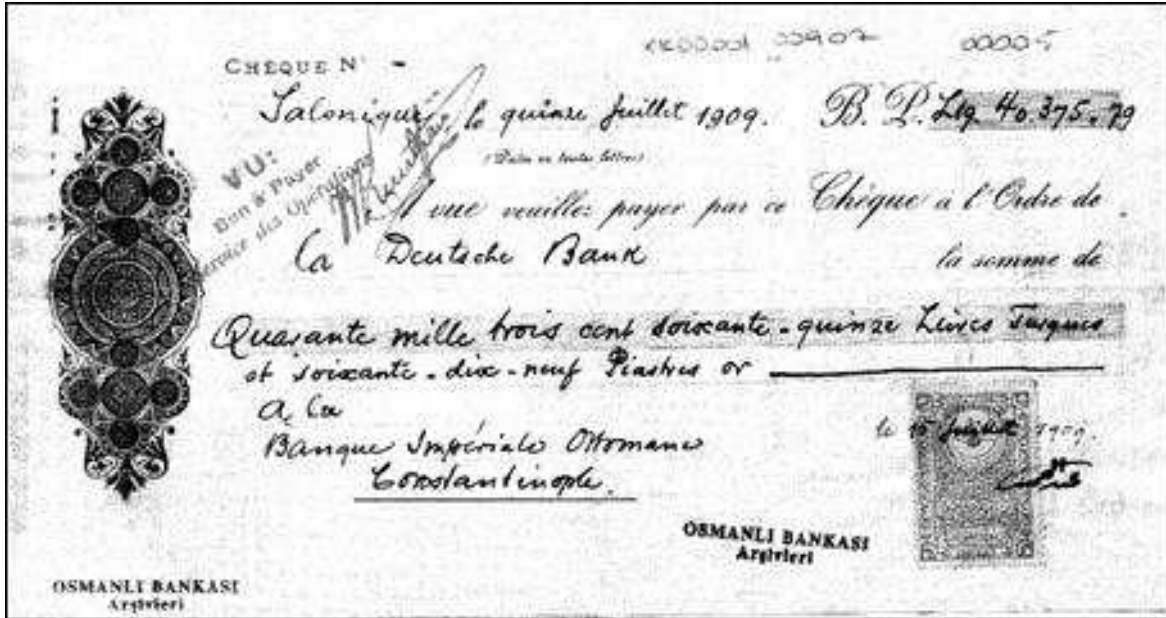 00005
CHEQUE N° -
Salonique, le quinze Juillet 1909. B. P. Ltq. 40.375.79
(Date en toutes lettres)
VU:
Bon à Payer
Service des Opérations
A vue veuillez payer par ce Chèque à l'Ordre de
La Deutsche Bank la somme de
Quarante mille trois cent soixante-quinze Livres Turques
et soixante-dix-neuf Piastres or
A la
Banque Impériale Ottomane
Constantinople.
le 15 Juillet 1909.
OSMANLI BANKASI
Arşivleri
OSMANLI BANKASI
Arşivleri